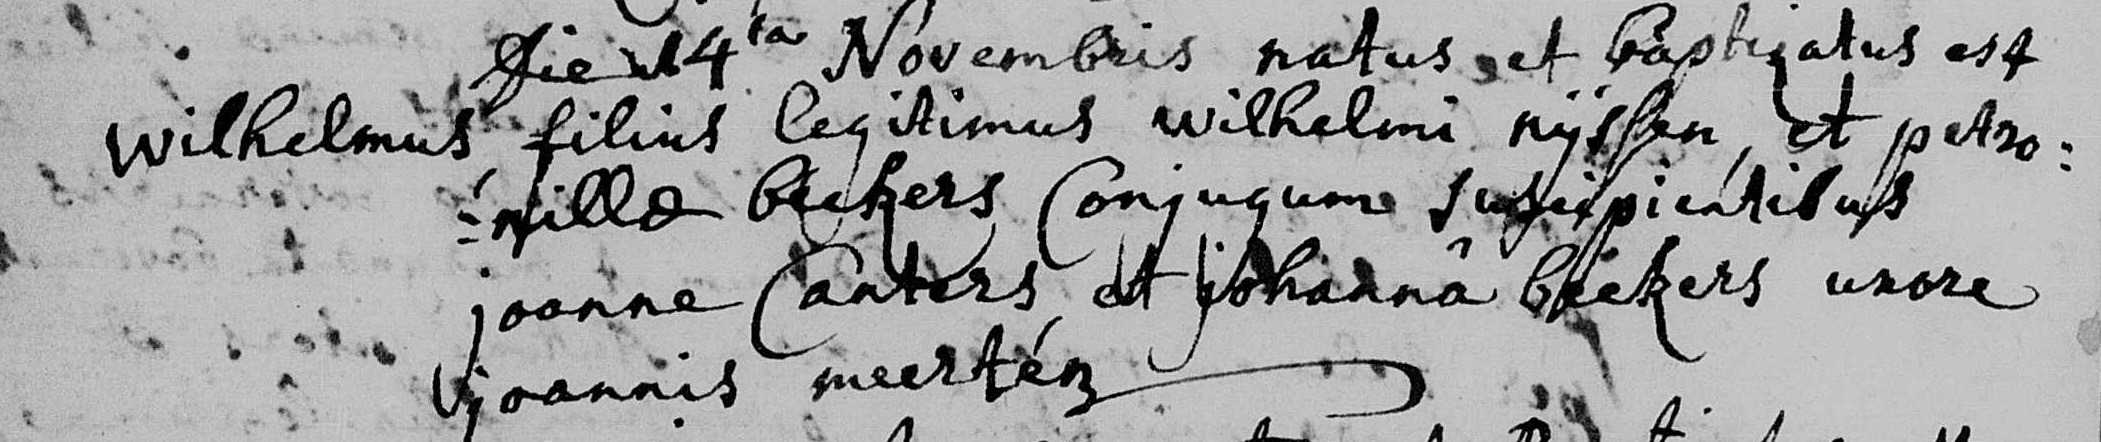 Die 14ta Novembris natus et baptizatus est
Wilhelmus filius legitimus wilhelmi nijssen et petro:
:nillæ beckers Conjugum suscipientibus
joanne Canters et johannâ beckers uxore
joannis meertén